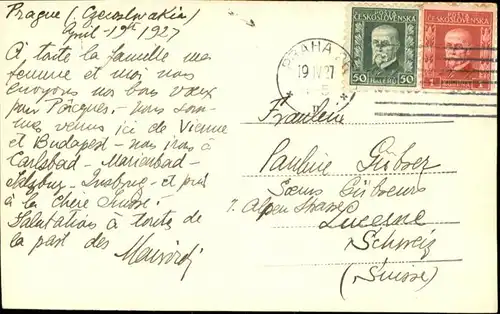 Prague (Czecoslwakia)
April - 19th 1927
A toute la famille ma
femme et moi nos
envoyons nos bons vœux
pour Pâques - nous som-
mes venus ici de Vienne
et Budapest - nos irons à
Carlsbad - Marienbad -
Salzburg - Insbrug - et puis
à la Chère Suisse!
Salutations à toute de
la part des
PRAHA
19.IV.27
POŠTA
ČESKOSLOVENSKÁ
50 HALÉŘŮ 50
POŠTA
ČESKOSLOVENSKÁ
1 1
Fräuleine
Pauline Gübser
Sœurs Gübseurs
7. Alpen Strasse
Lucerne
Schweiz
(Suisse)